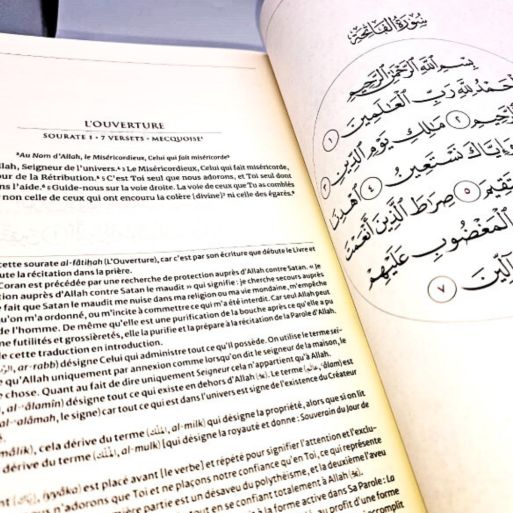 L'OUVERTURE
SOURATE 1 • 7 VERSETS • MECQUOISE¹
²Au Nom d'Allah, le Miséricordieux, Celui qui fait miséricorde³
Allah, Seigneur de l'univers.⁴ Le Miséricordieux, Celui qui fait miséricorde,
our de la Rétribution.⁴ ⁵ C'est Toi seul que nous adorons, et Toi seul dont
ns l'aide.⁶ Guide-nous sur la voie droite. La voie de ceux que Tu as comblés
non celle de ceux qui ont encouru la colère [divine]⁷ ni celle des égarés.⁸
cette sourate al-fâtiḥah (L'Ouverture), car c'est par son écriture que débute le Livre et
ute la récitation dans la prière.
Coran est précédée par une recherche de protection auprès d'Allah contre Satan. « Je
tion auprès d'Allah contre Satan le maudit » qui signifie : je cherche secours auprès
e fait que Satan le maudit me nuise dans ma religion ou ma vie mondaine, m'empêche
qu'on m'a ordonné, ou m'incite à commettre ce qui m'a été interdit. Car seul Allah peut
de l'homme. De même qu'elle est une purification de la bouche après ce qu'elle a pu
e futilités et grossièretés, elle la purifie et la prépare à la récitation de la Parole d'Allah.
de cette traduction en introduction.
ar-rabb) désigne Celui qui administre tout ce qu'Il possède. On utilise le terme sei-
e qu'Allah uniquement par annexion comme lorsqu'on dit le seigneur de la maison, le
e chose. Quant au fait de dire uniquement Seigneur cela n'appartient qu'à Allah.
al-'âlamîn) désigne tout ce qui existe en dehors d'Allah (ﷻ). Le terme (عالم, 'âlam) est
al-'alâmah, le signe) car tout ce qui est dans l'univers est signe de l'existence du Créateur
mâlik), cela dérive du terme (الملك, al-milk) qui désigne la propriété, alors que si on lit
dérive du terme (الملك, al-mulk) [qui désigne la royauté et donne : Souverain du Jour de
iyyâka) est placé avant [le verbe] et répété pour signifier l'attention et l'exclu-
n'adorons que Toi et ne plaçons notre confiance qu'en Toi, ce qui représente
première partie est un désaveu du polythéisme, et la deuxième l'aveu
tout en se confiant totalement à Allah
à la forme active dans Sa Parole : La
au profit d'une forme
سُورَةُ الفَاتِحَةِ
بِسْمِ اللَّهِ الرَّحْمَٰنِ الرَّحِيمِ
الْحَمْدُ لِلَّهِ رَبِّ الْعَالَمِينَ ١
الرَّحِيمِ ٢ مَالِكِ يَوْمِ الدِّينِ ٣
وَإِيَّاكَ نَسْتَعِينُ ٤ اهْدِنَا
ٱلْمُسْتَقِيمَ ٥ صِرَاطَ الَّذِينَ أَنْعَمْتَ
الْمَغْضُوبِ عَلَيْهِمْ
الضَّالِّينَ ٧